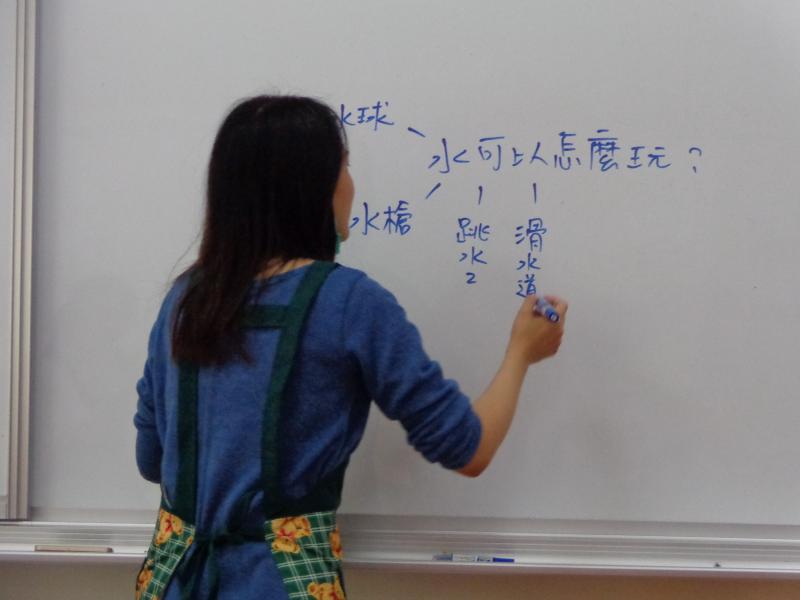 水球
水可以怎麼玩？
水槍
跳水2
滑水道